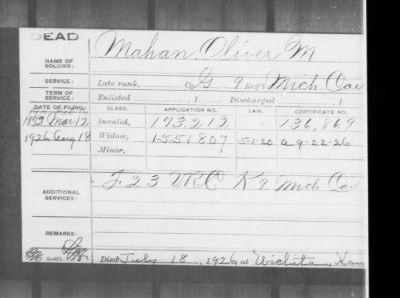 DEAD
NAME OF SOLDIER: Mahan, Oliver M
SERVICE: Late rank, Co G, 9 Reg't Mich Cav
TERM OF SERVICE: Enlisted , 1 Discharged , 1
DATE OF FILING. CLASS. APPLICATION NO. LAW. CERTIFICATE NO.
Mar 12 Invalid, 173,212 136,869
1926 Aug 18 Widow, 1551807 5-1-20 a 9-22-26
Minor,
ADDITIONAL SERVICES: F 23 VRC K 9 Mich Cav
REMARKS:
Died July 18, 1926, at Wichita, Kan